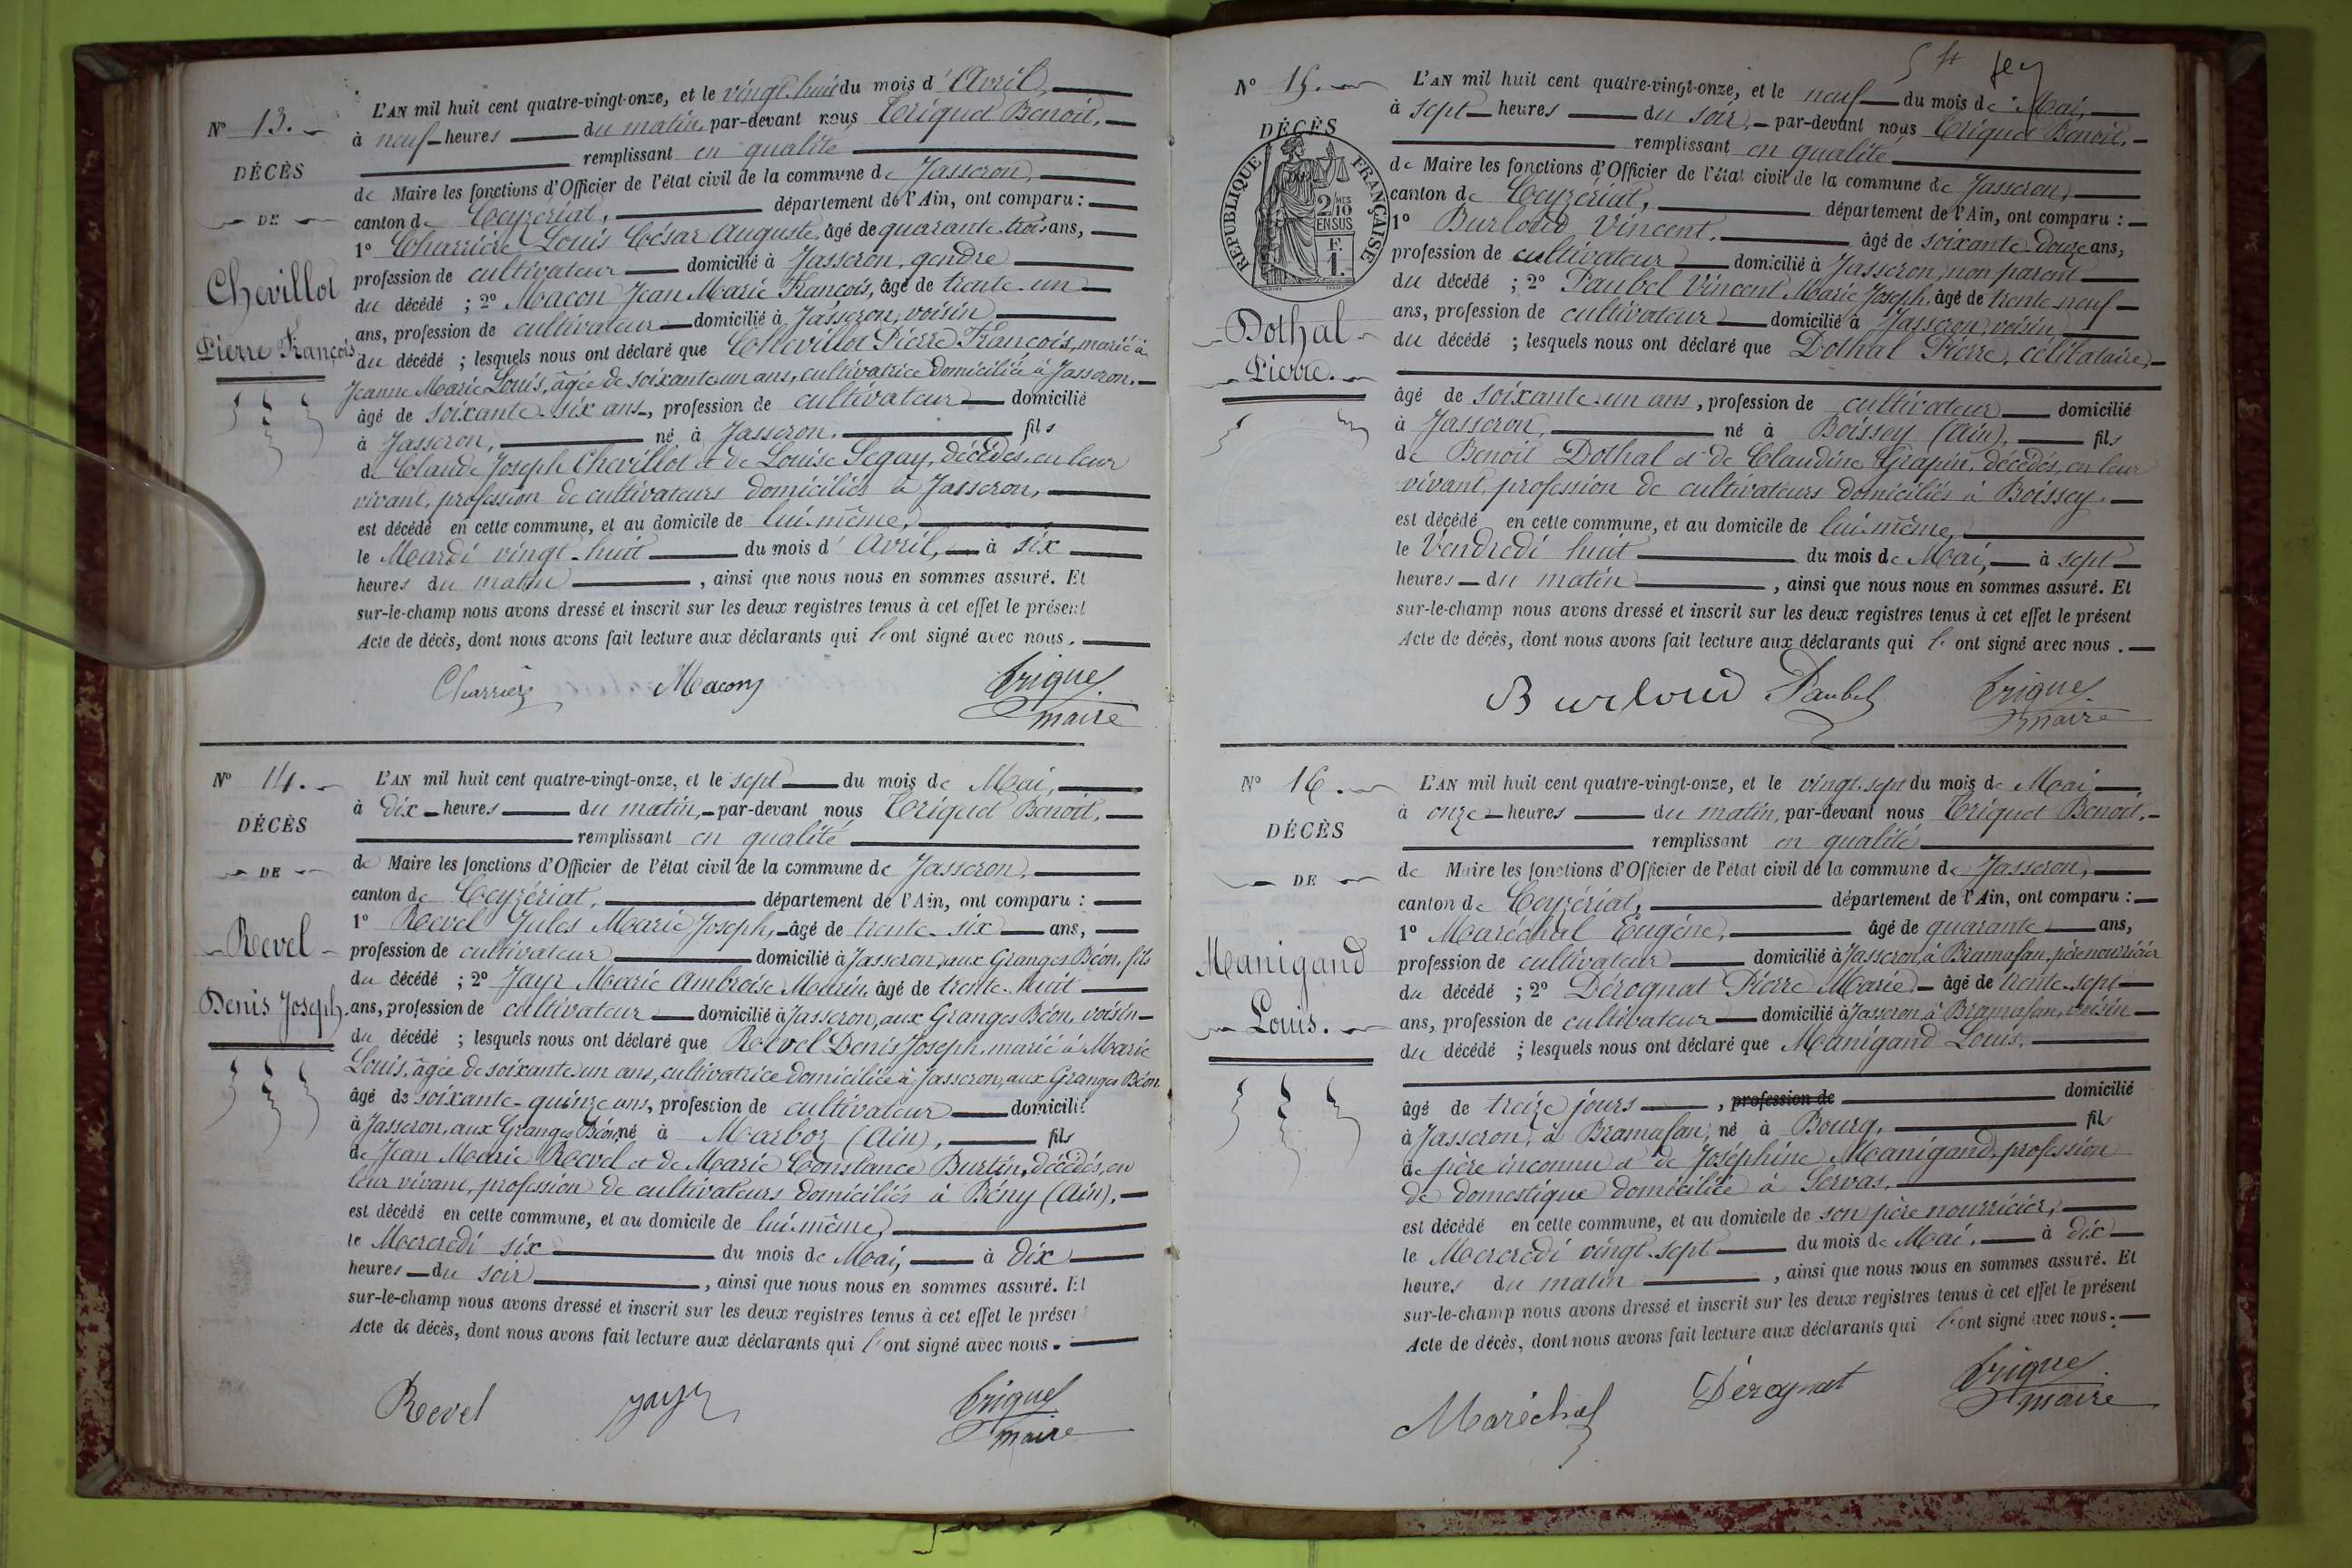 N° 13.
DÉCÈS
DE
Chevillot
Pierre François
L'AN mil huit cent quatre-vingt-onze, et le vingt-huit du mois d'Avril,
à neuf heures du matin, par-devant nous Triquet Benoit,
remplissant en qualité
de Maire les fonctions d'Officier de l'état civil de la commune de Jasseron,
canton de Ceyzériat, département de l'Ain, ont comparu :
1° Charrière Louis César Auguste, âgé de quarante-trois ans,
profession de cultivateur domicilié à Jasseron, gendre
du décédé ; 2° Macon Jean Marie François, âgé de trente-un
ans, profession de cultivateur domicilié à Jasseron, voisin
du décédé ; lesquels nous ont déclaré que Chevillot Pierre François, marié à
Jeanne Marie Louis, âgée de soixante un ans, cultivatrice domiciliée à Jasseron.
âgé de soixante-six ans, profession de cultivateur domicilié
à Jasseron, né à Jasseron. fils
de Claude Joseph Chevillot et de Louise Segay, décédés, en leur
vivant, profession de cultivateurs domiciliés à Jasseron,
est décédé en cette commune, et au domicile de lui-même,
le Mardi vingt-huit du mois d'Avril, à six
heures du matin, ainsi que nous nous en sommes assuré. Et
sur-le-champ nous avons dressé et inscrit sur les deux registres tenus à cet effet le présent
Acte de décès, dont nous avons fait lecture aux déclarants qui l'ont signé avec nous.
Charrière Macon Triquet
maire
N° 14.
DÉCÈS
DE
Revel
Denis Joseph.
L'AN mil huit cent quatre-vingt-onze, et le sept du mois de Mai,
à dix heures du matin, par-devant nous Triquet Benoit,
remplissant en qualité
de Maire les fonctions d'Officier de l'état civil de la commune de Jasseron,
canton de Ceyzériat, département de l'Ain, ont comparu :
1° Revel Jules Marie Joseph, âgé de trente-six ans,
profession de cultivateur domicilié à Jasseron, aux Granges Béon, fils
du décédé ; 2° Jayr Marie Ambroise Marin, âgé de trente-huit
ans, profession de cultivateur domicilié à Jasseron, aux Granges Béon, voisin
du décédé ; lesquels nous ont déclaré que Revel Denis Joseph, marié à Marie
Louis, âgée de soixante un ans, cultivatrice domiciliée à Jasseron, aux Granges Béon
âgé de soixante-quinze ans, profession de cultivateur domicilié
à Jasseron, aux Granges Béon, né à Marboz (Ain), fils
de Jean Marie Revel et de Marie Constance Burtin, décédés, en
leur vivant, profession de cultivateurs domiciliés à Bény (Ain),
est décédé en cette commune, et au domicile de lui-même,
le Mercredi six du mois de Mai, à dix
heures du soir, ainsi que nous nous en sommes assuré. Et
sur-le-champ nous avons dressé et inscrit sur les deux registres tenus à cet effet le présent
Acte de décès, dont nous avons fait lecture aux déclarants qui l'ont signé avec nous.
Revel Jayr Triquet
maire
N° 15.
DÉCÈS
RÉPUBLIQUE FRANÇAISE
2/10 MES
EN SUS
F.
1.
Dothal
Pierre.
L'AN mil huit cent quatre-vingt-onze, et le neuf du mois de Mai,
à sept heures du soir, par-devant nous Triquet Benoit,
remplissant en qualité
de Maire les fonctions d'Officier de l'état civil de la commune de Jasseron,
canton de Ceyzériat, département de l'Ain, ont comparu :
1° Burloud Vincent, âgé de soixante-douze ans,
profession de cultivateur domicilié à Jasseron, non parent
du décédé ; 2° Paubel Vincent Marie Joseph, âgé de trente neuf
ans, profession de cultivateur domicilié à Jasseron, voisin
du décédé ; lesquels nous ont déclaré que Dothal Pierre, célibataire,
âgé de soixante-un ans, profession de cultivateur domicilié
à Jasseron, né à Boissey (Ain), fils
de Benoit Dothal et de Claudine Grapin, décédés, en leur
vivant, profession de cultivateurs domiciliés à Boissey.
est décédé en cette commune, et au domicile de lui-même,
le Vendredi huit du mois de Mai, à sept
heures du matin, ainsi que nous nous en sommes assuré. Et
sur-le-champ nous avons dressé et inscrit sur les deux registres tenus à cet effet le présent
Acte de décès, dont nous avons fait lecture aux déclarants qui l'ont signé avec nous.
Burloud Paubel Triquet
maire
N° 16.
DÉCÈS
DE
Manigand
Louis.
L'AN mil huit cent quatre-vingt-onze, et le vingt-sept du mois de Mai,
à onze heures du matin, par-devant nous Triquet Benoit,
remplissant en qualité
de Maire les fonctions d'Officier de l'état civil de la commune de Jasseron,
canton de Ceyzériat, département de l'Ain, ont comparu :
1° Maréchal Eugène, âgé de quarante ans,
profession de cultivateur domicilié à Jasseron, à Bramafan, père nourricier
du décédé ; 2° Dérognat Pierre Marie âgé de trente-sept
ans, profession de cultivateur domicilié à Jasseron à Bramafan, voisin
du décédé ; lesquels nous ont déclaré que Manigand Louis,
âgé de treize jours, profession de domicilié
à Jasseron, à Bramafan, né à Bourg, fils
de père inconnu et de Joséphine Manigand, profession
de domestique domiciliée à Servas,
est décédé en cette commune, et au domicile de son père nourricier,
le Mercredi vingt-sept du mois de Mai, à dix
heures du matin, ainsi que nous nous en sommes assuré. Et
sur-le-champ nous avons dressé et inscrit sur les deux registres tenus à cet effet le présent
Acte de décès, dont nous avons fait lecture aux déclarants qui l'ont signé avec nous.
Maréchal Dérognat Triquet
maire